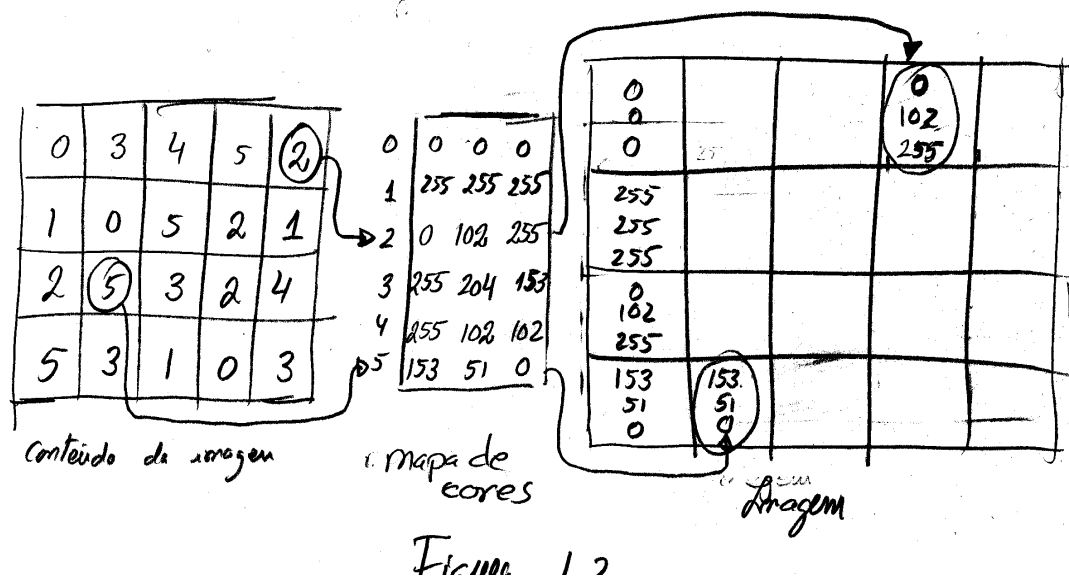 0 3 4 5 2
1 0 5 2 1
2 5 3 2 4
5 3 1 0 3
Conteúdo da imagem
0 0 0 0
1 255 255 255
2 0 102 255
3 255 204 153
4 255 102 102
5 153 51 0
mapa de
cores
0 0
0 102
0 255
255
255
255
0
102
255
153 153
51 51
0 0
Imagem
Figura 1.2